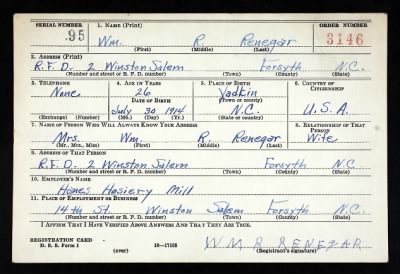 SERIAL NUMBER 1. NAME (Print) ORDER NUMBER
95 Wm. R. Renegar 3146
(First) (Middle) (Last)
2. ADDRESS (Print)
R.F.D. 2 Winston Salem Forsyth N.C.
(Number and street or R. F. D. number) (Town) (County) (State)
3. TELEPHONE 4. AGE IN YEARS 5. PLACE OF BIRTH 6. COUNTRY OF CITIZENSHIP
None 26 Yadkin
DATE OF BIRTH (Town or county)
July 30 1914 N.C. U.S.A.
(Exchange) (Number) (Mo.) (Day) (Yr.) (State or country)
7. NAME OF PERSON WHO WILL ALWAYS KNOW YOUR ADDRESS 8. RELATIONSHIP OF THAT PERSON
Mrs. Wm R Renegar Wife
(Mr., Mrs., Miss) (First) (Middle) (Last)
9. ADDRESS OF THAT PERSON
R.F.D. 2 Winston Salem Forsyth N.C.
(Number and street or R. F. D. number) (Town) (County) (State)
10. EMPLOYER'S NAME
Hanes Hosiery Mill
11. PLACE OF EMPLOYMENT OR BUSINESS
14th St. Winston Salem Forsyth N.C.
(Number and street or R. F. D. number) (Town) (County) (State)
I AFFIRM THAT I HAVE VERIFIED ABOVE ANSWERS AND THAT THEY ARE TRUE.
REGISTRATION CARD
D. S. S. Form 1 16—17105 W M R RENEGAR
(over) (Registrant's signature)